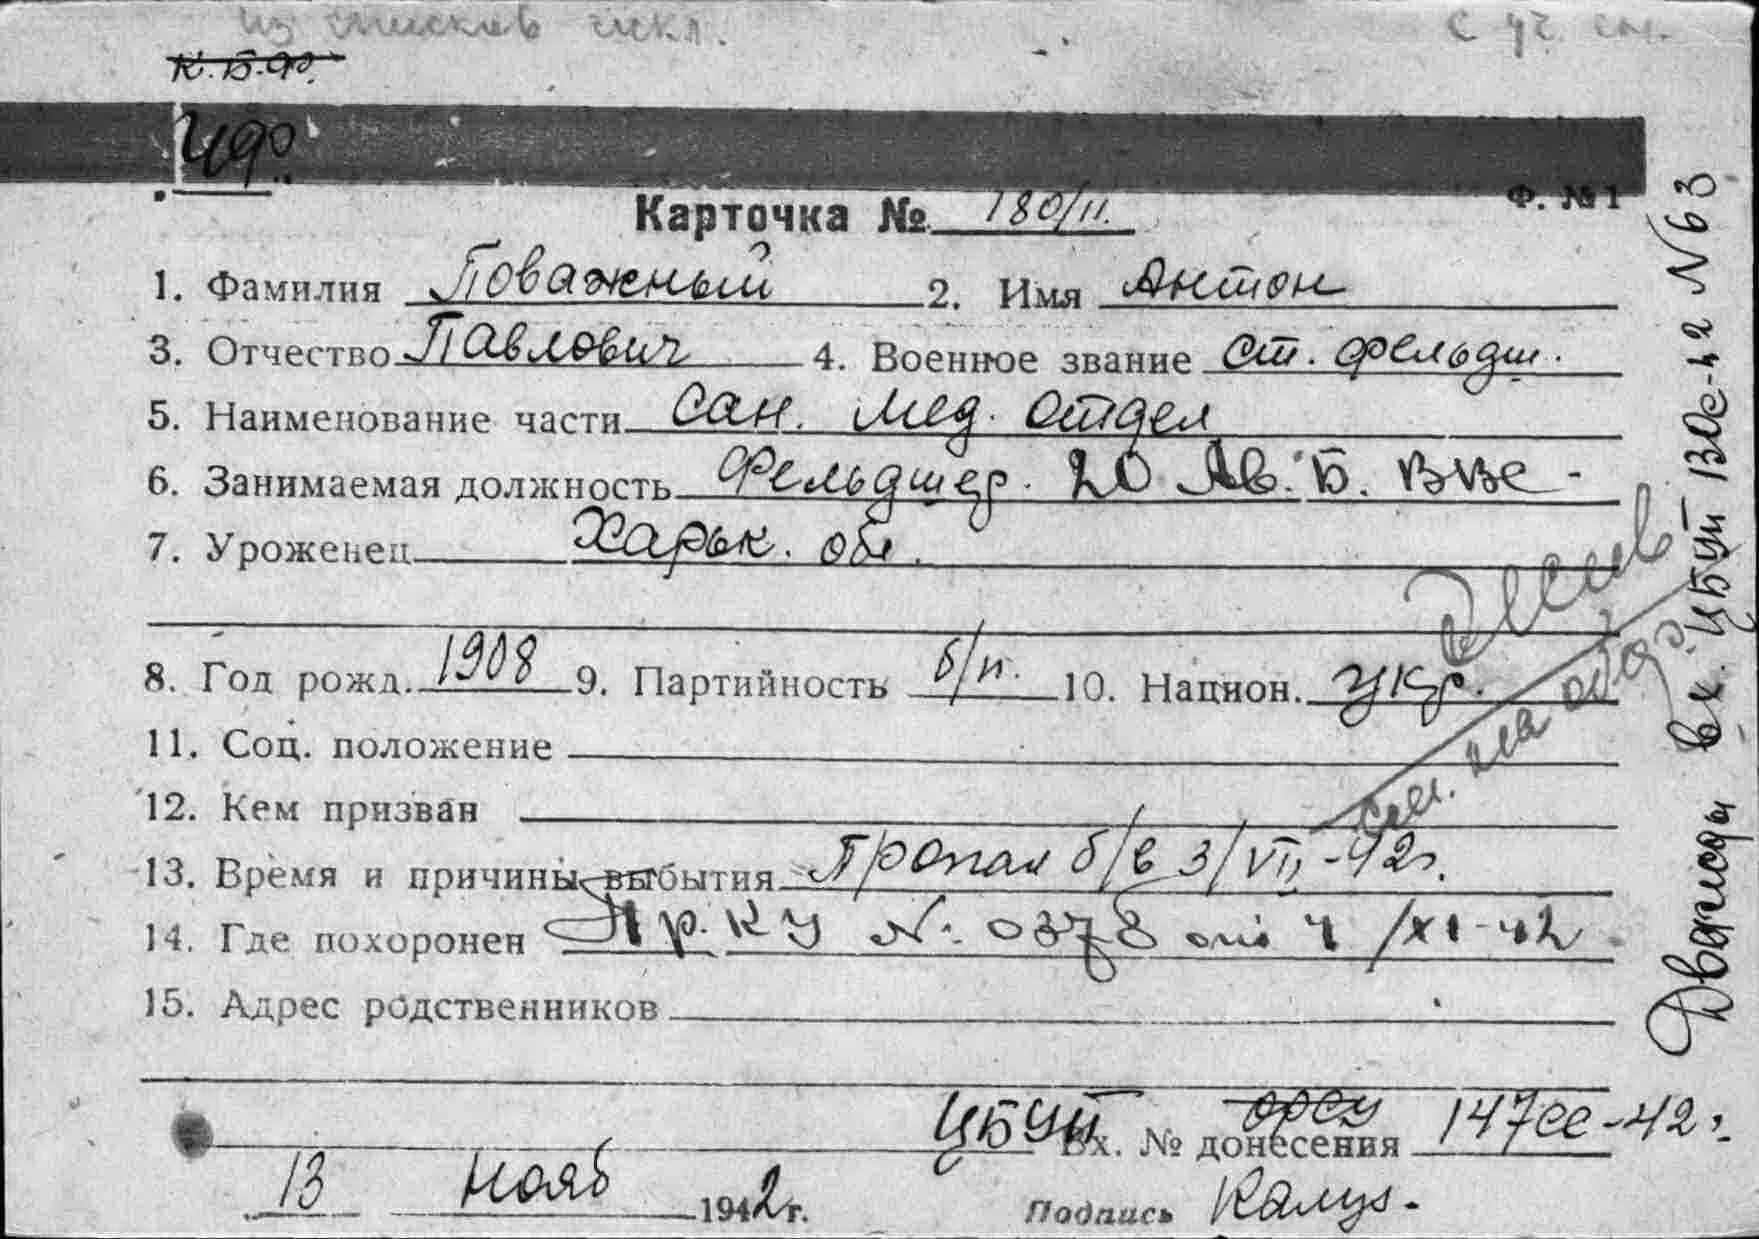 из списков искл.
с уч. сн.
К.Б.Ф.
ЧФ
Ф. №1
Карточка № 180/п.
1. Фамилия Поважный 2. Имя Антон
3. Отчество Павлович 4. Военное звание ст. фельдш.
5. Наименование части Сан. мед. отдел
6. Занимаемая должность Фельдшер. 20 Ав. Б. ВВС -
7. Уроженец Харьк. обл.
8. Год рожд. 1908 9. Партийность б/п. 10. Национ. укр.
11. Соц. положение
12. Кем призван
13. Время и причины выбытия Пропал б/в 3/VII-42г.
14. Где похоронен Пр. КУ №. 0378 от 4/XI-42
15. Адрес родственников
ЦБУП Вх. № донесения 147сс-42г.
13 нояб 1942г. Подпись
см. на обор.
Дважды вх. ЦБУП 130с-42 №63